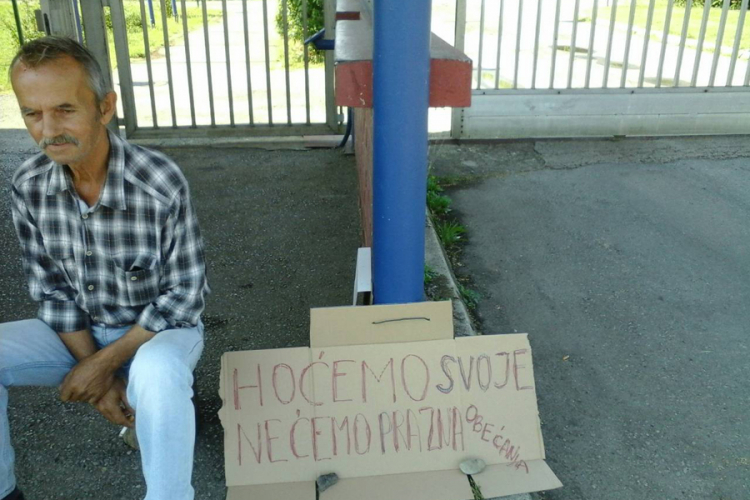 HOĆEMO SVOJE
NEĆEMO PRAZNA OBEĆANJA